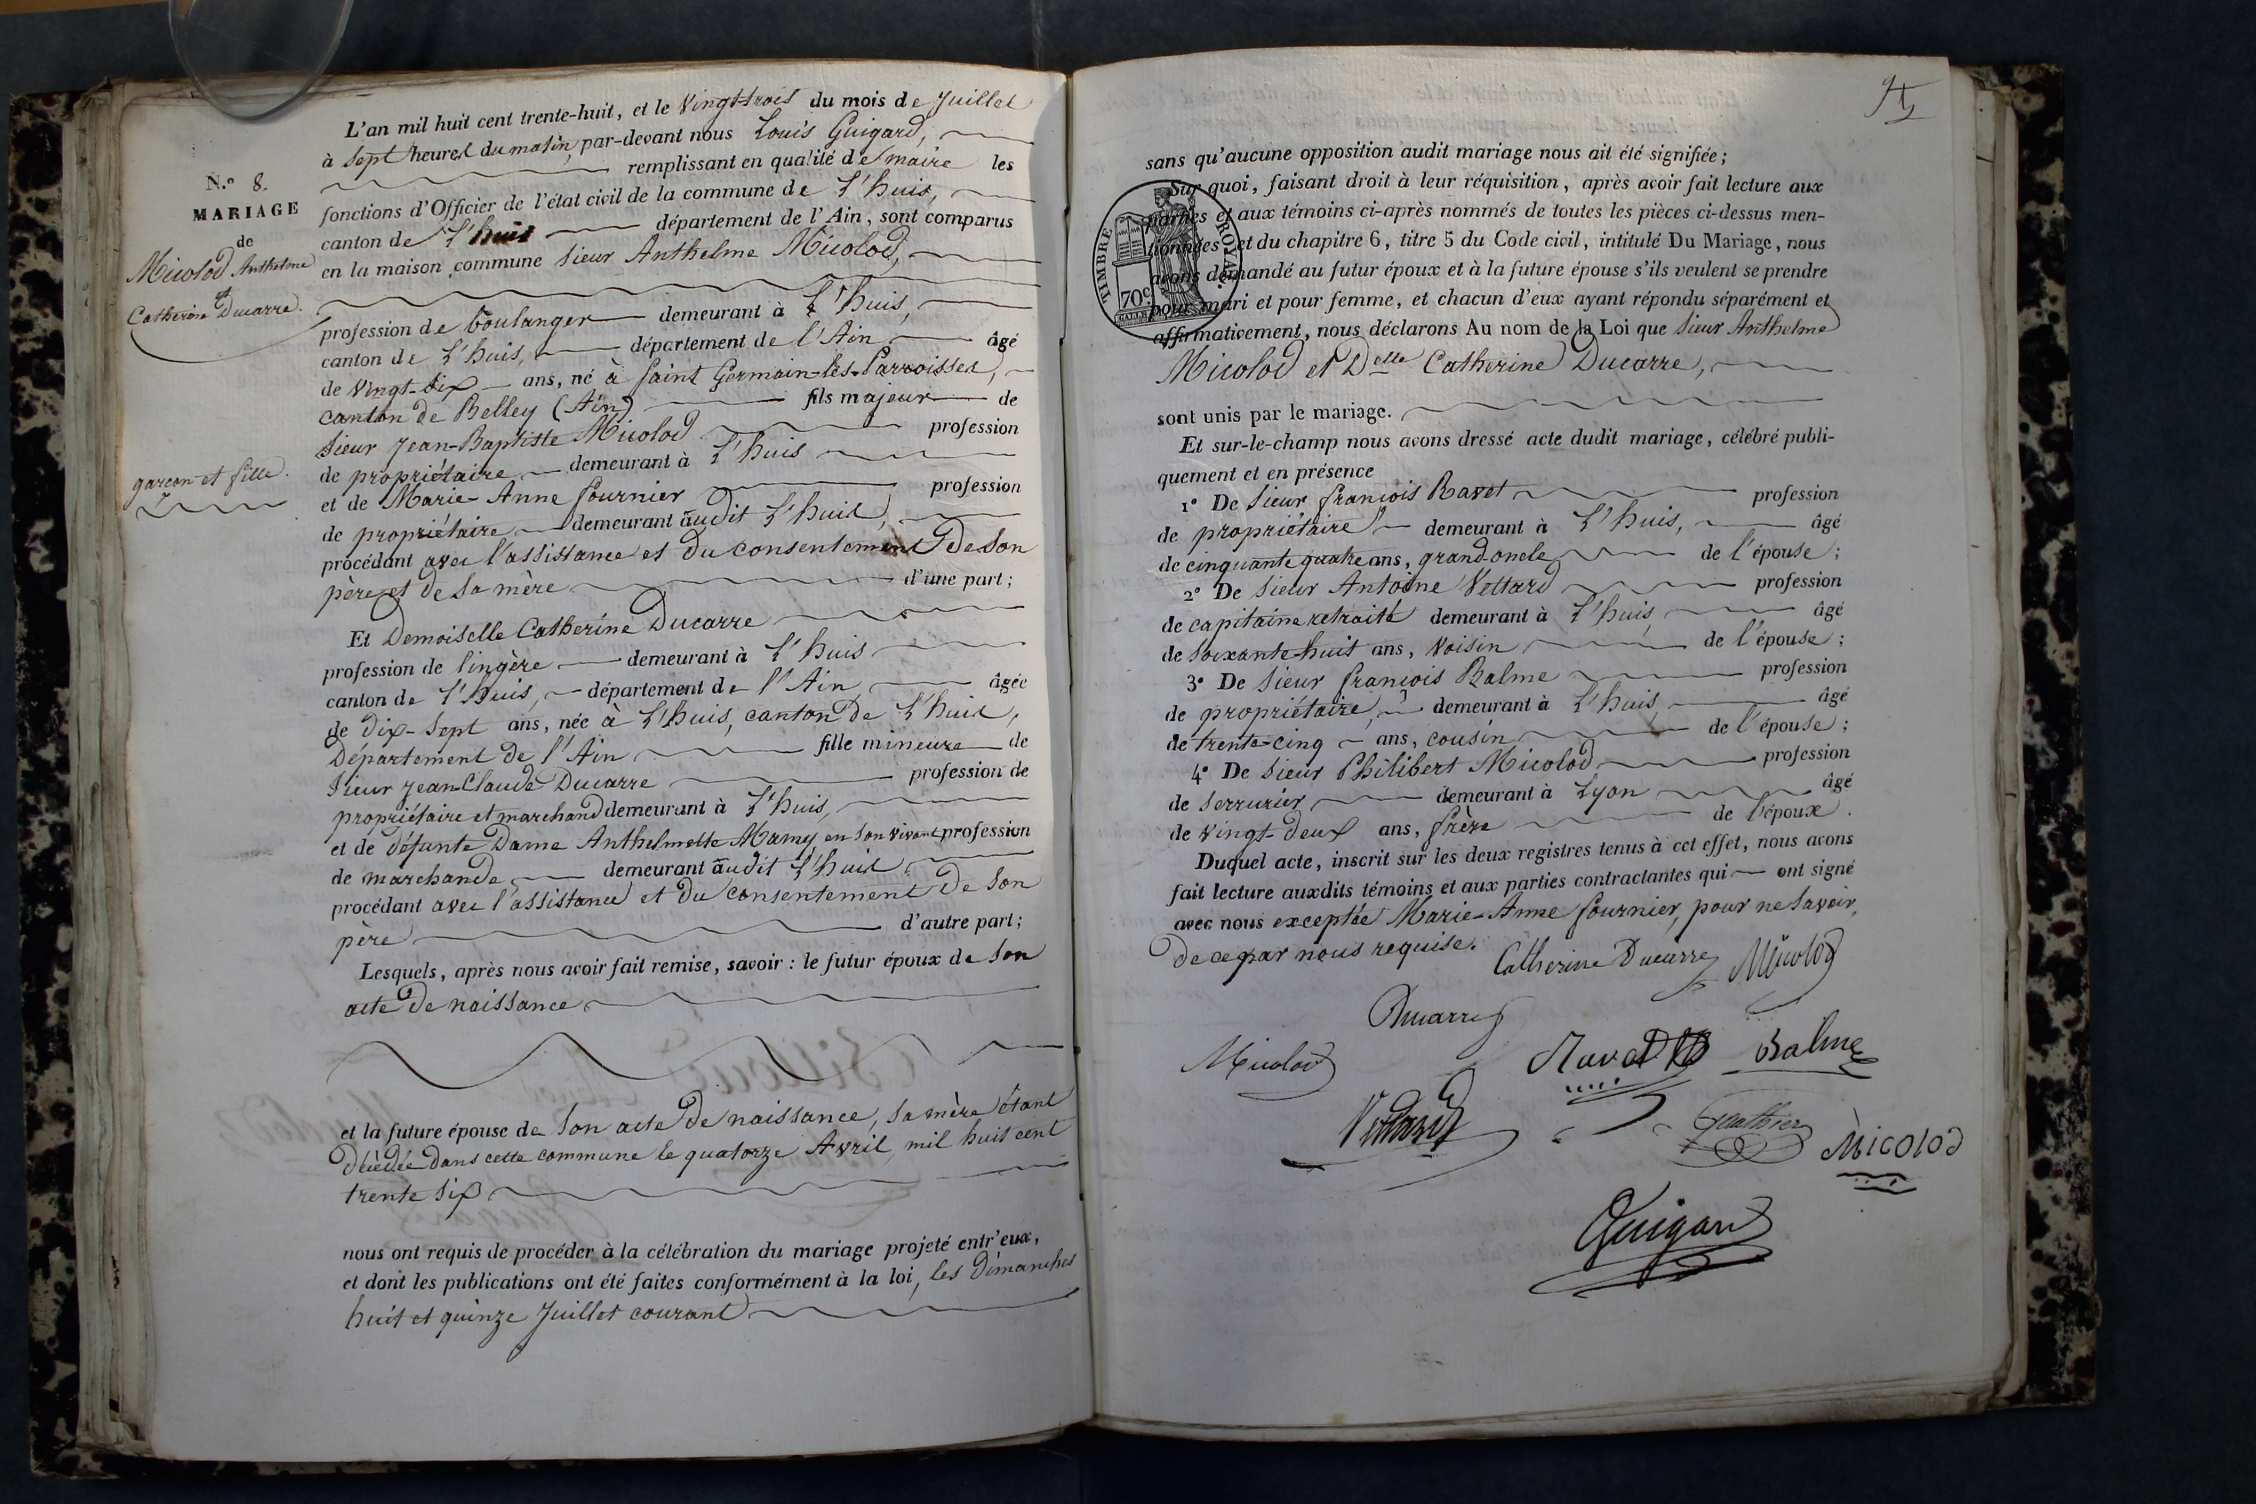 N.º 8.
MARIAGE
de
Micolod Anthelme
et
Catherine Ducarre.
garçon et fille.
L'an mil huit cent trente-huit, et le vingt-trois du mois de Juillet
à sept heures du matin, par-devant nous Louis Guigard,
remplissant en qualité de maire les
fonctions d'Officier de l'état civil de la commune de L'huis,
canton de L'huis département de l'Ain, sont comparus
en la maison commune sieur Anthelme Micolod,
profession de boulanger demeurant à L'huis,
canton de L'huis, département de l'Ain âgé
de vingt-six ans, né à saint Germain-les-Parroisses,
canton de Belley (Ain) fils majeur de
sieur Jean-Baptiste Micolod profession
de propriétaire demeurant à L'huis
et de Marie-Anne fournier profession
de propriétaire demeurant audit L'huis,
procédant avec l'assistance et du consentement de son
père et de sa mère d'une part;
Et Demoiselle Catherine Ducarre
profession de lingère demeurant à L'huis
canton de L'huis, département de l'Ain, âgée
de dix-sept ans, née à L'huis, canton de L'huis,
Département de l'Ain fille mineure de
sieur Jean-Claude Ducarre profession de
propriétaire et marchand demeurant à L'huis,
et de défunte Dame Anthelmette Mamy, en son vivant profession
de marchande, demeurant audit L'huis,
procédant avec l'assistance et du consentement de son
père d'autre part;
Lesquels, après nous avoir fait remise, savoir : le futur époux de son
acte de naissance
et la future épouse de son acte de naissance, sa mère étant
décédée dans cette commune le quatorze Avril, mil huit cent
trente six
nous ont requis de procéder à la célébration du mariage projeté entr'eux,
et dont les publications ont été faites conformément à la loi, les dimanches
huit et quinze Juillet courant
sans qu'aucune opposition audit mariage nous ait été signifiée;
Sur quoi, faisant droit à leur réquisition, après avoir fait lecture aux
parties et aux témoins ci-après nommés de toutes les pièces ci-dessus men-
tionnées, et du chapitre 6, titre 5 du Code civil, intitulé Du Mariage, nous
avons demandé au futur époux et à la future épouse s'ils veulent se prendre
pour mari et pour femme, et chacun d'eux ayant répondu séparément et
affirmativement, nous déclarons Au nom de la Loi que sieur Anthelme
Micolod et Delle Catherine Ducarre,
sont unis par le mariage.
Et sur-le-champ nous avons dressé acte dudit mariage, célébré publi-
quement et en présence
1º De sieur françois Ravet profession
de propriétaire demeurant à L'huis, âgé
de cinquante quatre ans, grand-oncle de l'épouse;
2º De sieur Antoine Vettard profession
de capitaine retraité demeurant à L'huis, âgé
de soixante-huit ans, voisin de l'épouse;
3º De sieur françois Balme profession
de propriétaire, demeurant à L'huis, âgé
de trente-cinq ans, cousin de l'épouse;
4º De sieur Philibert Micolod profession
de serrurier demeurant à Lyon âgé
de vingt-deux ans, frère de l'époux.
Duquel acte, inscrit sur les deux registres tenus à cet effet, nous avons
fait lecture auxdits témoins et aux parties contractantes qui ont signé
avec nous exceptée Marie-Anne fournier, pour ne savoir,
de ce par nous requise.
Catherine Ducarre Micolod
Ducarre
Micolod Ravet Balme
Vettard Gauthier Micolod
Guigard
TIMBRE ROYAL
70c